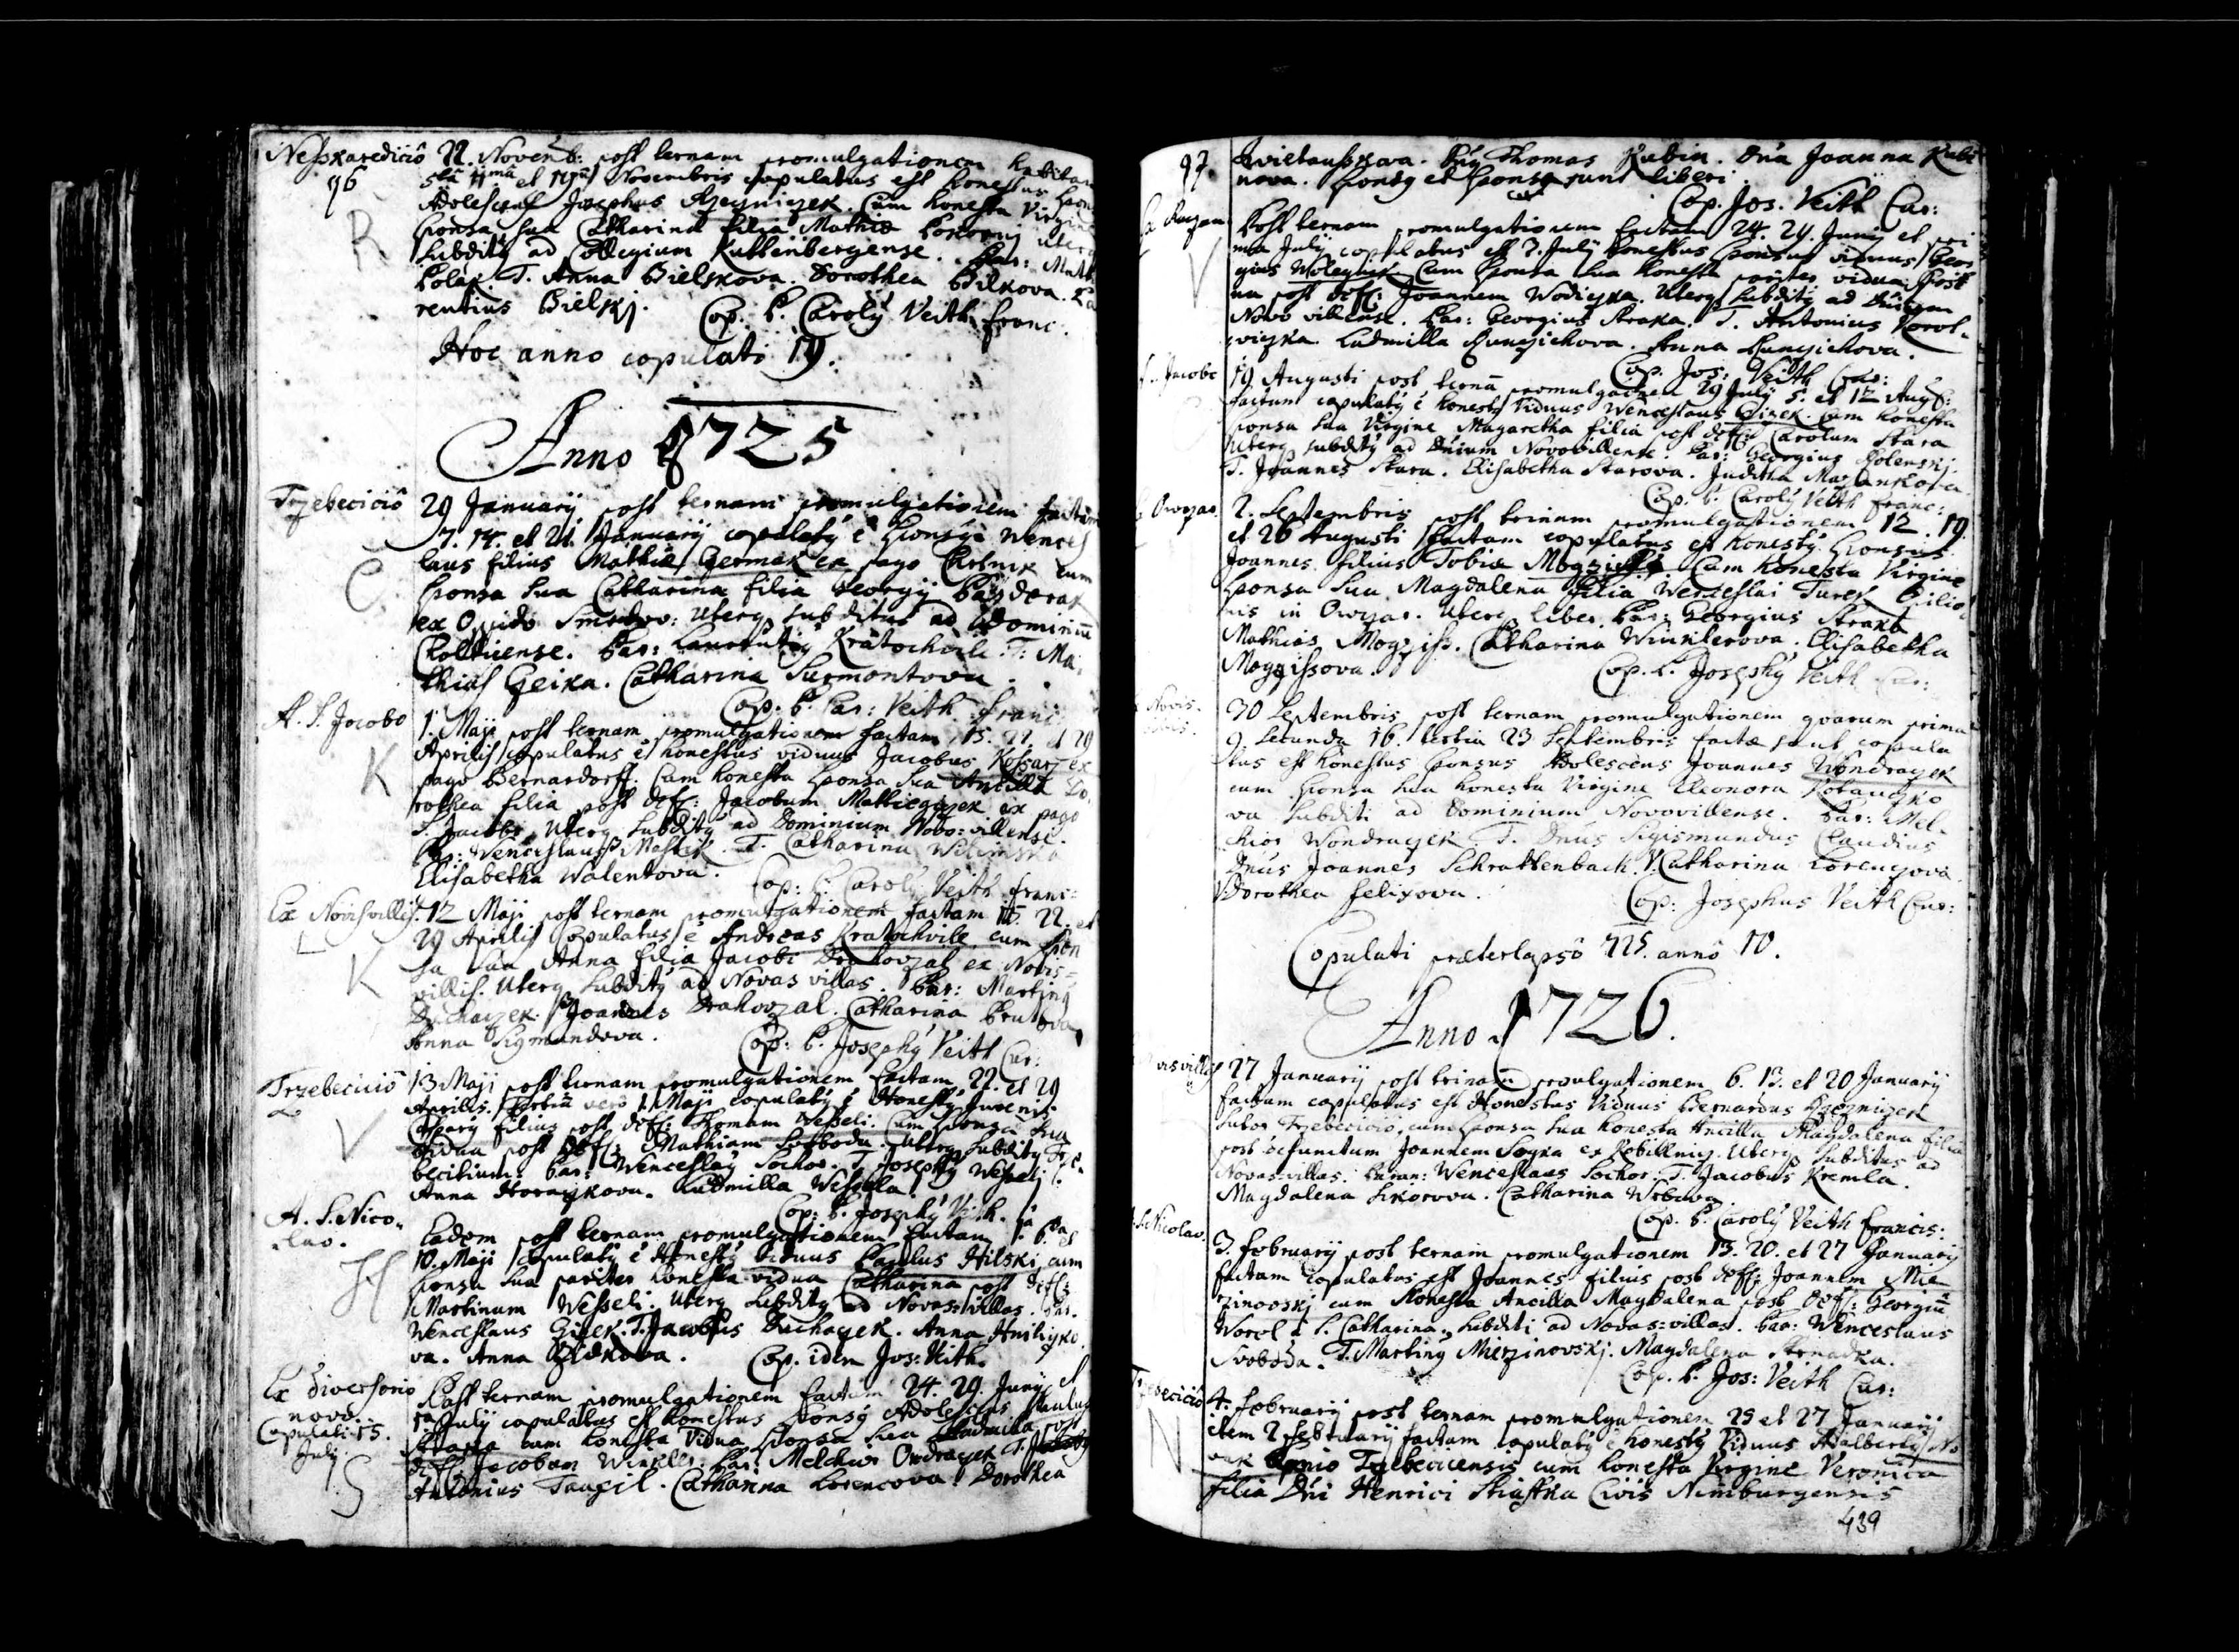 Nesskarediciô 22. Novemb: post ternam promulgationem habitam
96
5ta 11ma et 19na Novembris copulatus est honestus spons
Adolescens Josephus Rzezniczek. Cum honesta Virgine
sponsa sua Catharina filia Mathiæ Pokorny uterq
subditý ad Collegium Kuttenbergense. Par: Math
Polak. T. Anna Bielskova. Dorothea Bilkova. La
rentius Bielskj. Cop. P. Carolý Veith Franc.
Hoc anno copulati 19.
Anno 1725
Trzebeciciô 29 Januarij post ternam promulgationem factam
7. 14. et 21. Januarij copulatý è sponsý Wences
laus filius Mathiæ Czermak ex pago cum
sponsa sua Catharina filia Georgij
ex Oppido uterq subditus ad Dominiū
Choltitense. Par: Laurentiý Kratochvile. T: Ma
thias Geika. Catharina Surmontova.
Cop. P. Car: Veith Franc
A. S. Jacobo 1. Maji post ternam promulgationem factam 15. 22. et 29
Aprilis copulatus è honestus viduus Jacobus Kessarz ex
pago Bernardorff. Cum honesta sponsa sua Ancilla Do
rothea filia post deff: Jacobum Mattieyczek ex pago
S. Jacobi, Uterq subditý ad Dominium Novo=villense.
Par: Wenceslaus Mastik. T. Catharina
Elisabetha Walentova. Cop: P. Carolý Veith Franc:
Ex Novisvillis. 12 Maji post ternam promulgationem factam 15. 22. et
29 Aprilis copulatus è Andreas Kratochvile cum spon
sa sua Anna filia Jacobi Drahozal ex Novis=
villis. Uterq subditý ad Novas villas. Par: Martiný
Duchaczek. Joannes Drahozal. Catharina
Anna Sigmundova. Cop: P. Josephý Veith Cur:
Trzebeciciô 13 Maji post ternam promulgationem factam 22. et 29
Aprilis. Tertia verò 1. Maji copulatý è Honestý Juvenis
Casparý filius post deff: Thomam Wesseli. Cum sponsa sua
vidua post deff: Mathiam Swoboda. Uterq subditý Trze
becicium. Par: Wenceslaý Sochor. T. Josephý Wesseli
Anna Horaczkova. Ludmilla Wessela.
Cop: P. Josephý Veith.
A. S. Nico=
lao.
Eadem post ternam promulgationem factam 1. 6. et
10. Maji copulatý è Honestý viduus Paulus Hilski cum
sponsa sua pariter honesta vidua Catharina post deff:
Martinum Wesseli. Uterq subditý ad Novas=villas. Par.
Wenceslaus Gizek. T. Jacobus Duchaczek. Anna Hniliczko
va. Anna Cop. idem Jos: Veith.
Ex diversorio
novo.
Copulati 15.
Julij.
Post ternam promulgationem factam 24. 29. Junij et
1ma Julij copulatus est honestus sponsý Adolescens Paulus
Straka cum honesta Vidua sponsa sua Ludmilla post
deff: Jacobum Winkler. Par: Melchior Ondraczek T.
Antonius Taugil. Catharina Lorencova. Dorothea
97.
Kvietausskova. Dnus Thomas Rubin. Dña Joanna Rubi
nova. Sponsý et sponsa sunt liberi.
Cop. Jos. Veith Cur:
Post ternam promulgationem factam 24. 29. Junij et pri
ma Julij copulatus est 3. Julij honestus sponsus viduus Geor
gius Woleynik Cum sponsa sua honesta pariter vidua
na post deff: Joannem Wodiczka. Uterq subditý ad Dnium
Novo villense. Par: Georgius Straka. T. Antonius Korol=
wiczka. Ludmilla Runczichova. Anna Runczichova.
Cop. Jos: Veith Cur:
S. Jacobi
19 Augusti post ternã promulgaõem 29 Julij 5. et 12 Aug:
factam copulatý è honestý Viduus Wenceslaus Gizek. Cum honesta
sponsa sua Virgine Magaretha filia post deff: Carolum Stara
Uterq subditý ad Dnium Novovillense. Par: Georgius Polenskj.
T. Joannes Stara. Elisabetha Starova. Juditha
Cop. P. Carolý Veith Franc:
Owczar.
2. Septembris post trinam promulgationem 12. 19.
et 26 Augusti factam copulatus est honestý sponsus
Joannes filius Tobiæ Mogziss Cum honesta Virgine
sponsa sua Magdalena filia Wenceslai Turek
nis in Owczar. Uterq liber. Par: Georgius Straka
Mathias Mogziss. Catharina Winklerova. Elisabetha
Mogzissova. Cop. P. Josephý Veith Cur:
Novis.
30 Septembris post ternam promulgationem quarum prima
9. secunda 16. tertia 23 Septembris factæ sunt copula
tus est honestus sponsus Adolescens Joannes Wondraczek
cum sponsa sua honesta Virgine Eleonora
va subditi ad Dominium Novovillense. Par: Mel
chior Wondraczek. T. Dnus Sigismundus Claudius
Dnus Joannes Schrattenbach. Catharina Lorenczova
Dorothea Felixova. Cop: Josephus Veith Cur:
Copulati præterlapsô 725. annô 10.
Anno 1726.
27 Januarij post trinam promulgationem 6. 13. et 20 Januarij
factam copulatus est Honestus Viduus Bernardus Rzezniczek
Sutor Trzebeciciô, cum sponsa sua honesta Ancilla Magdalena filia
post defunctum Joannem Soyka ex Kobillnicz. Uterq subditus ad
Novas=villas. Paran: Wenceslaus Sochor. T. Jacobus Kremla.
Magdalena Sikorova. Catharina Wrbova.
Cop. P. Carolý Veith Francis:
S. Nicolao.
3. Februarij post ternam promulgationem 13. 20. et 27 Januarij
factam copulatus est Joannes filius post deff: Joannem Mie
rzinovskj cum Honesta Ancilla Magdalena post deff: Georgiũ
Worol à S. Catharina. subditi ad Novas=villas. Par: Wenceslaus
Svoboda. T. Martiný Mierzinovskj. Magdalena Strnadka.
Cop. P. Jos: Veith Cur:
Trzebeciciô
4. Februarij post ternam promulgationem 25 et 27 Januarij
item 2 Februarij factam copulatý è honestý Viduus Adalbertý No
vak Trzebecicensis cum honesta Virgine Veronica
filia Dni Henrici Stiastka Civis Nimburgensis
439